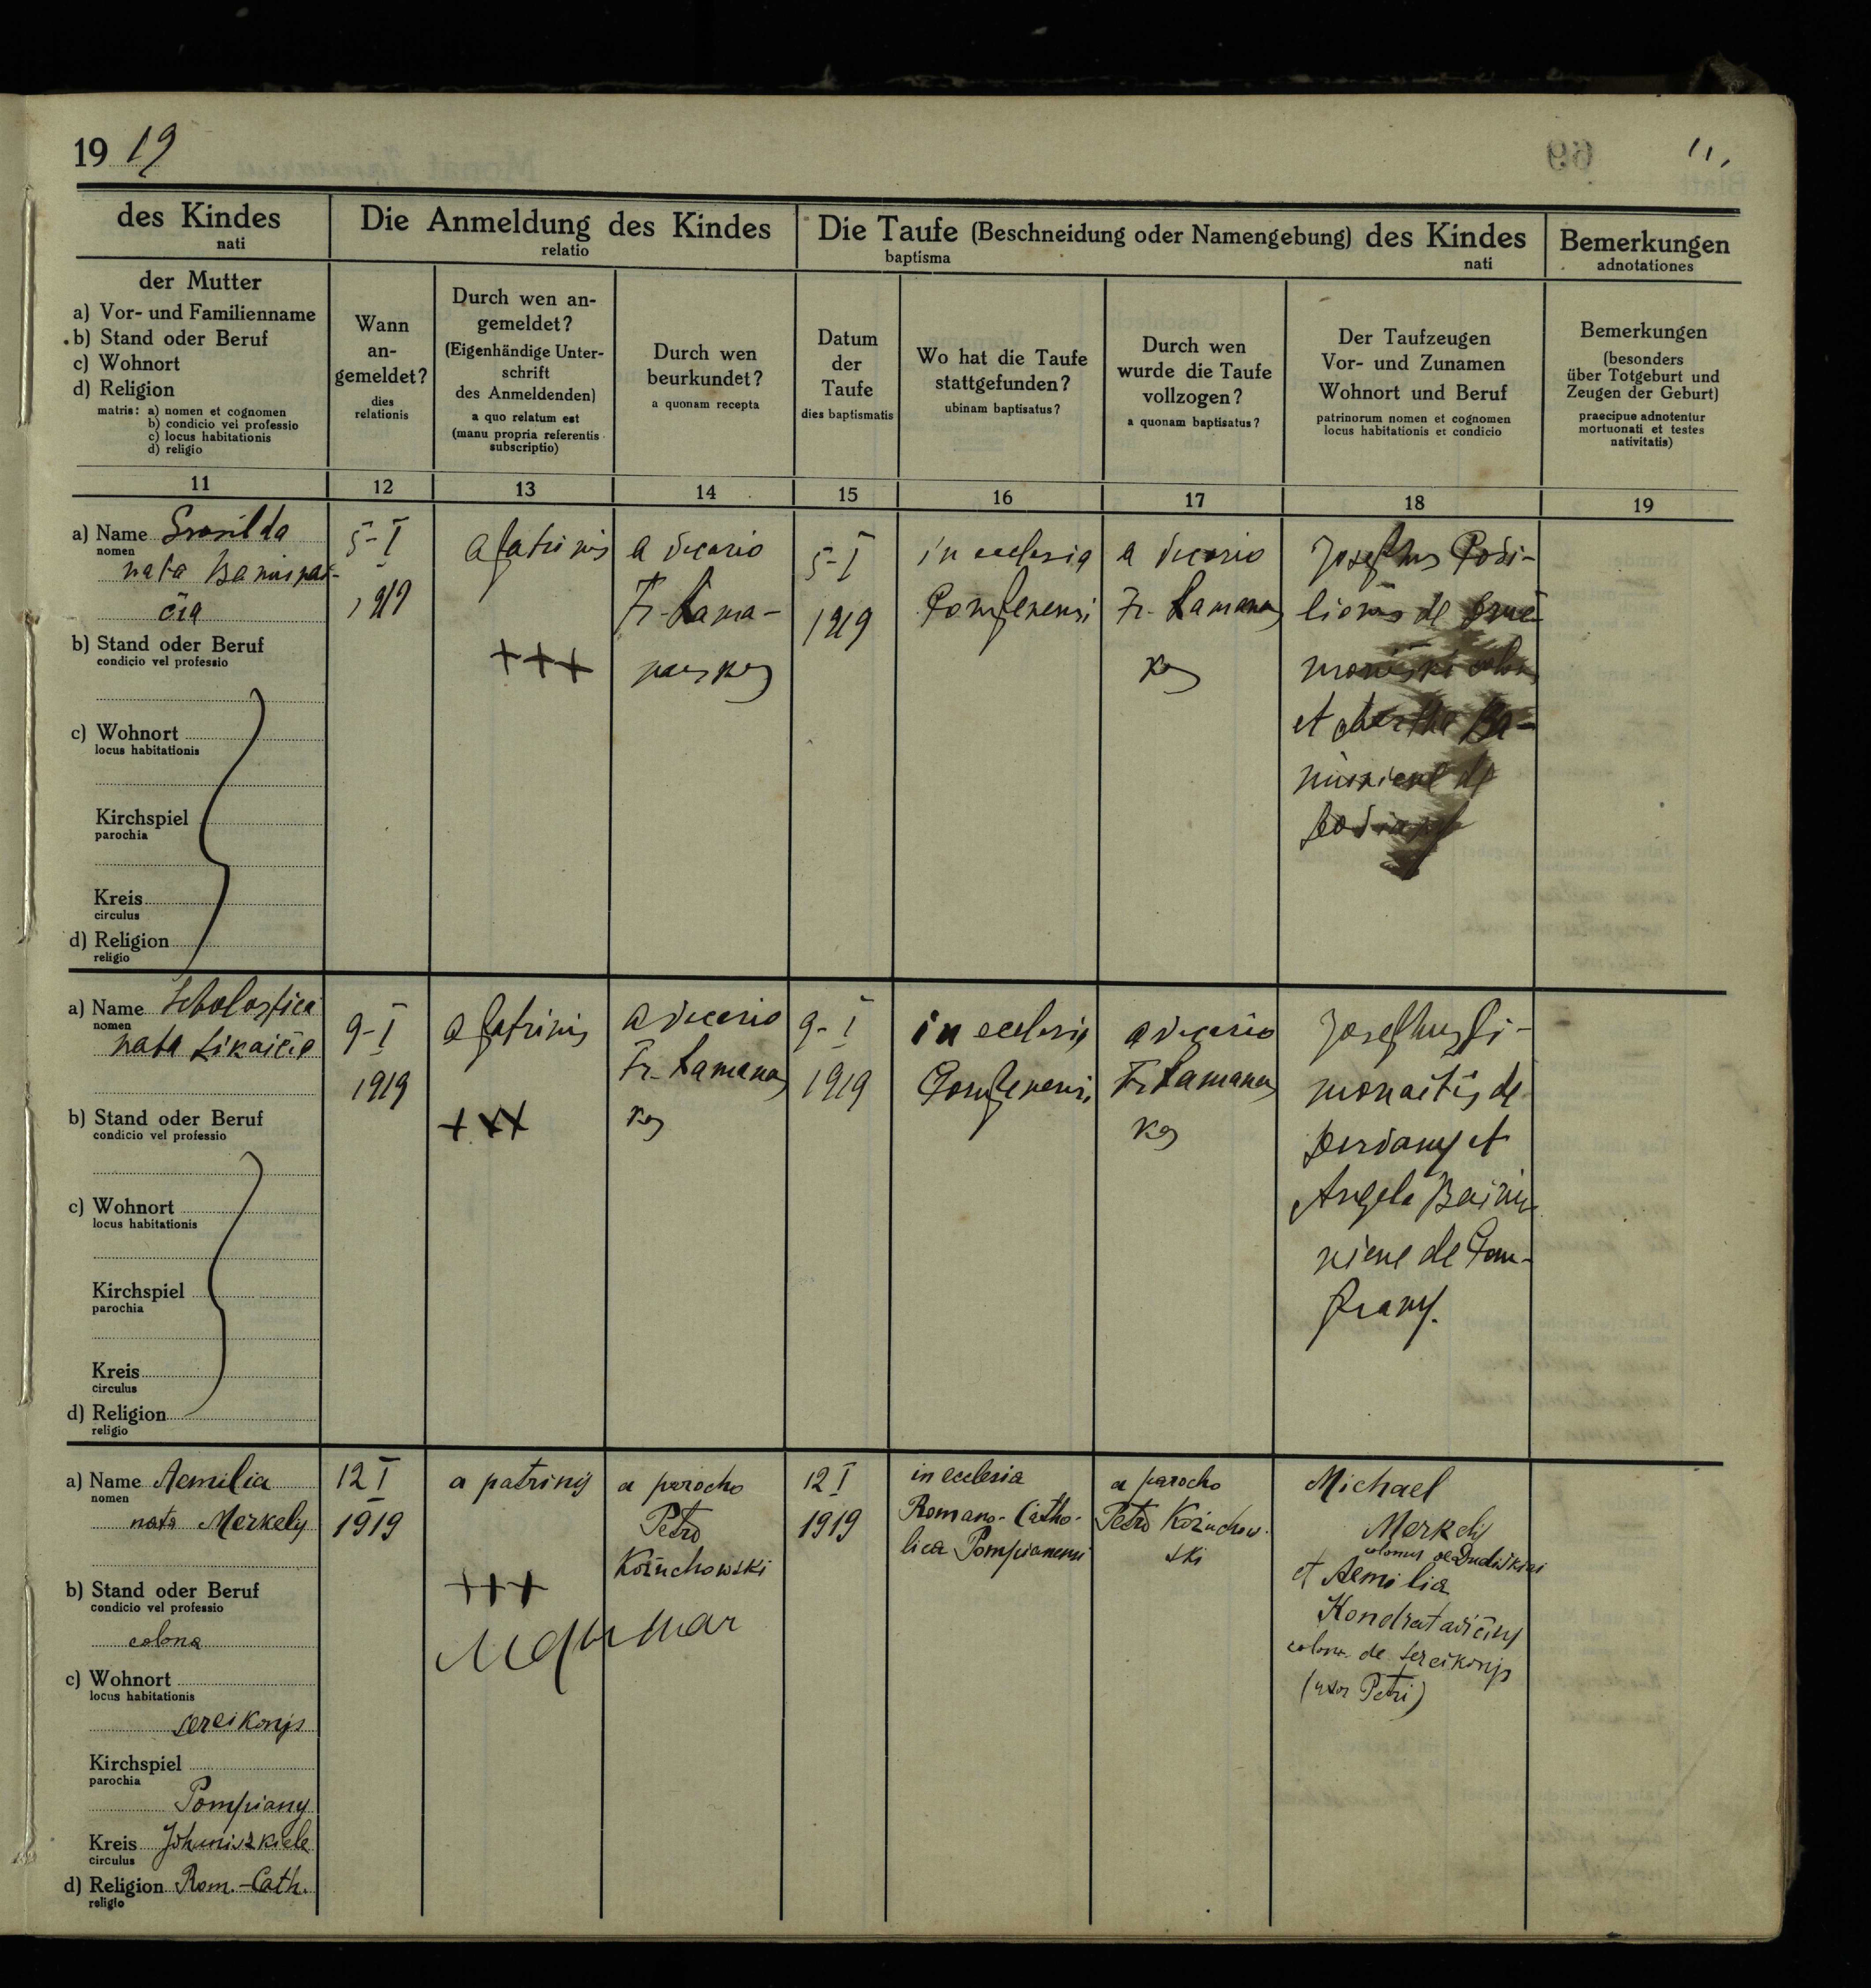 19 19
69
11,
des Kindes
nati
Die Anmeldung des Kindes
relatio
Die Taufe (Beschneidung oder Namengebung) des Kindes
baptisma nati
Bemerkungen
adnotationes
der Mutter
a) Vor- und Familienname
b) Stand oder Beruf
c) Wohnort
d) Religion
matris: a) nomen et cognomen
b) condicio vel professio
c) locus habitationis
d) religio
Wann
an-
gemeldet?
dies
relationis
Durch wen an-
gemeldet?
(Eigenhändige Unter-
schrift
des Anmeldenden)
a quo relatum est
(manu propria referentis
subscriptio)
Durch wen
beurkundet?
a quonam recepta
Datum
der
Taufe
dies baptismatis
Wo hat die Taufe
stattgefunden?
ubinam baptisatus?
Durch wen
wurde die Taufe
vollzogen?
a quonam baptisatus?
Der Taufzeugen
Vor- und Zunamen
Wohnort und Beruf
patrinorum nomen et cognomen
locus habitationis et condicio
Bemerkungen
(besonders
über Totgeburt und
Zeugen der Geburt)
praecipue adnotentur
mortuonati et testes
nativitatis)
11 12 13 14 15 16 17 18 19
a) Name
nomen
nata
čia
b) Stand oder Beruf
condicio vel professio
c) Wohnort
locus habitationis
Kirchspiel
parochia
Kreis
circulus
d) Religion
religio
5-I
1919
a patrinis
+++
a vicario
Fr. Lama-
nauskas
5-I
1919
in ecclesia
Pompenensi
a vicario
Fr. Lamanaus
kas
Josephus
de
et
de
a) Name Scholastica
nomen
nata Likaičia
b) Stand oder Beruf
condicio vel professio
c) Wohnort
locus habitationis
Kirchspiel
parochia
Kreis
circulus
d) Religion
religio
9-I
1919
a patrinis
+++
a vicario
Fr. Lamanaus
kas
9-I
1919
in ecclesia
Pompenensi
a vicario
Fr. Lamanaus
kas
Josephus Si-
monaitis de
et
Angela
niene de Pom-
piany.
a) Name Aemilia
nomen
nata Merkely
b) Stand oder Beruf
condicio vel professio
colona
c) Wohnort
locus habitationis
Sereikonys
Kirchspiel
parochia
Pompiany
Kreis Johaniszkiele
circulus
d) Religion Rom.-Cath.
religio
12 I
1919
a patrinis
+++
a parocho
Petro
Kożuchowski
12 I
1919
in ecclesia
Romano-Catho-
lica Pompianensi
a parocho
Petro Kożuchow-
ski
Michael
Merkelis
colonus de
et Aemilia
colona de Sereikonys
(uxor Petri)